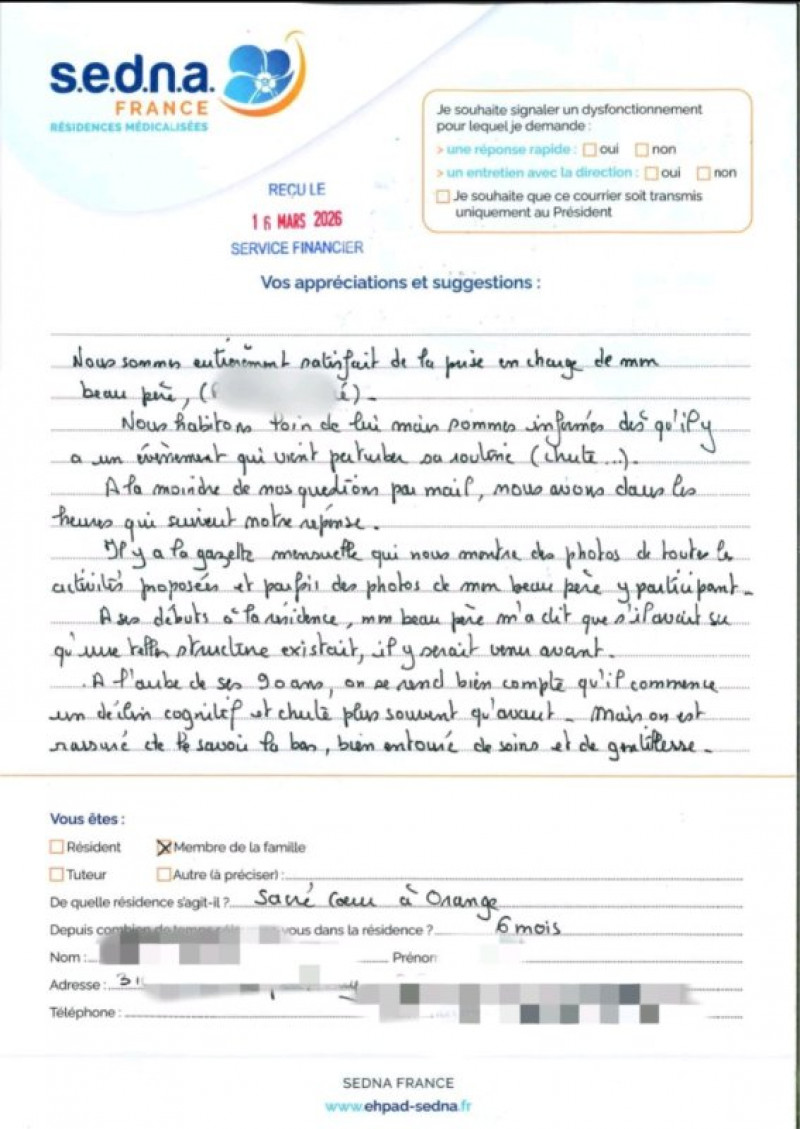 s.e.d.n.a.
FRANCE
RÉSIDENCES MÉDICALISÉES
Je souhaite signaler un dysfonctionnement
pour lequel je demande :
> une réponse rapide : oui non
> un entretien avec la direction : oui non
Je souhaite que ce courrier soit transmis
uniquement au Président
REÇU LE
16 MARS 2026
SERVICE FINANCIER
Vos appréciations et suggestions :
Nous sommes entièrement satisfait de la prise en charge de mon
beau père, ( é).
Nous habitons loin de lui mais sommes informés dès qu'il y
a un évènement qui vient pertuber sa routine (chute...).
A la moindre de nos questions par mail, nous avons dans les
heures qui suivent notre réponse.
Il y a la gazette mensuelle qui nous montre des photos de toutes les
activités proposées et parfois des photos de mon beau père y participant.
A ses débuts à la résidence, mon beau père m'a dit que s'il avait su
qu'une telle structure existait, il y serait venu avant.
A l'aube de ses 90 ans, on se rend bien compte qu'il commence
un déclin cognitif et chute plus souvent qu'avant. Mais on est
rassuré de le savoir là bas, bien entouré de soins et de gentillesse.
Vous êtes :
Résident Membre de la famille
Tuteur Autre (à préciser) :
De quelle résidence s'agit-il ? Sacré Coeur à Orange
Depuis vous dans la résidence ? 6 mois
Nom : Prénom
Adresse : 31
Téléphone :
SEDNA FRANCE
www.ehpad-sedna.fr